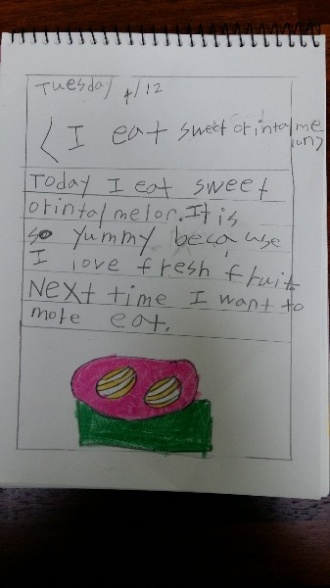 Tuesday 4/12
< I eat sweet orintal me
lon>
Today I eat sweet
orintal melon. It is
so yummy because
I love fresh fruit
Next time I want to
more eat.